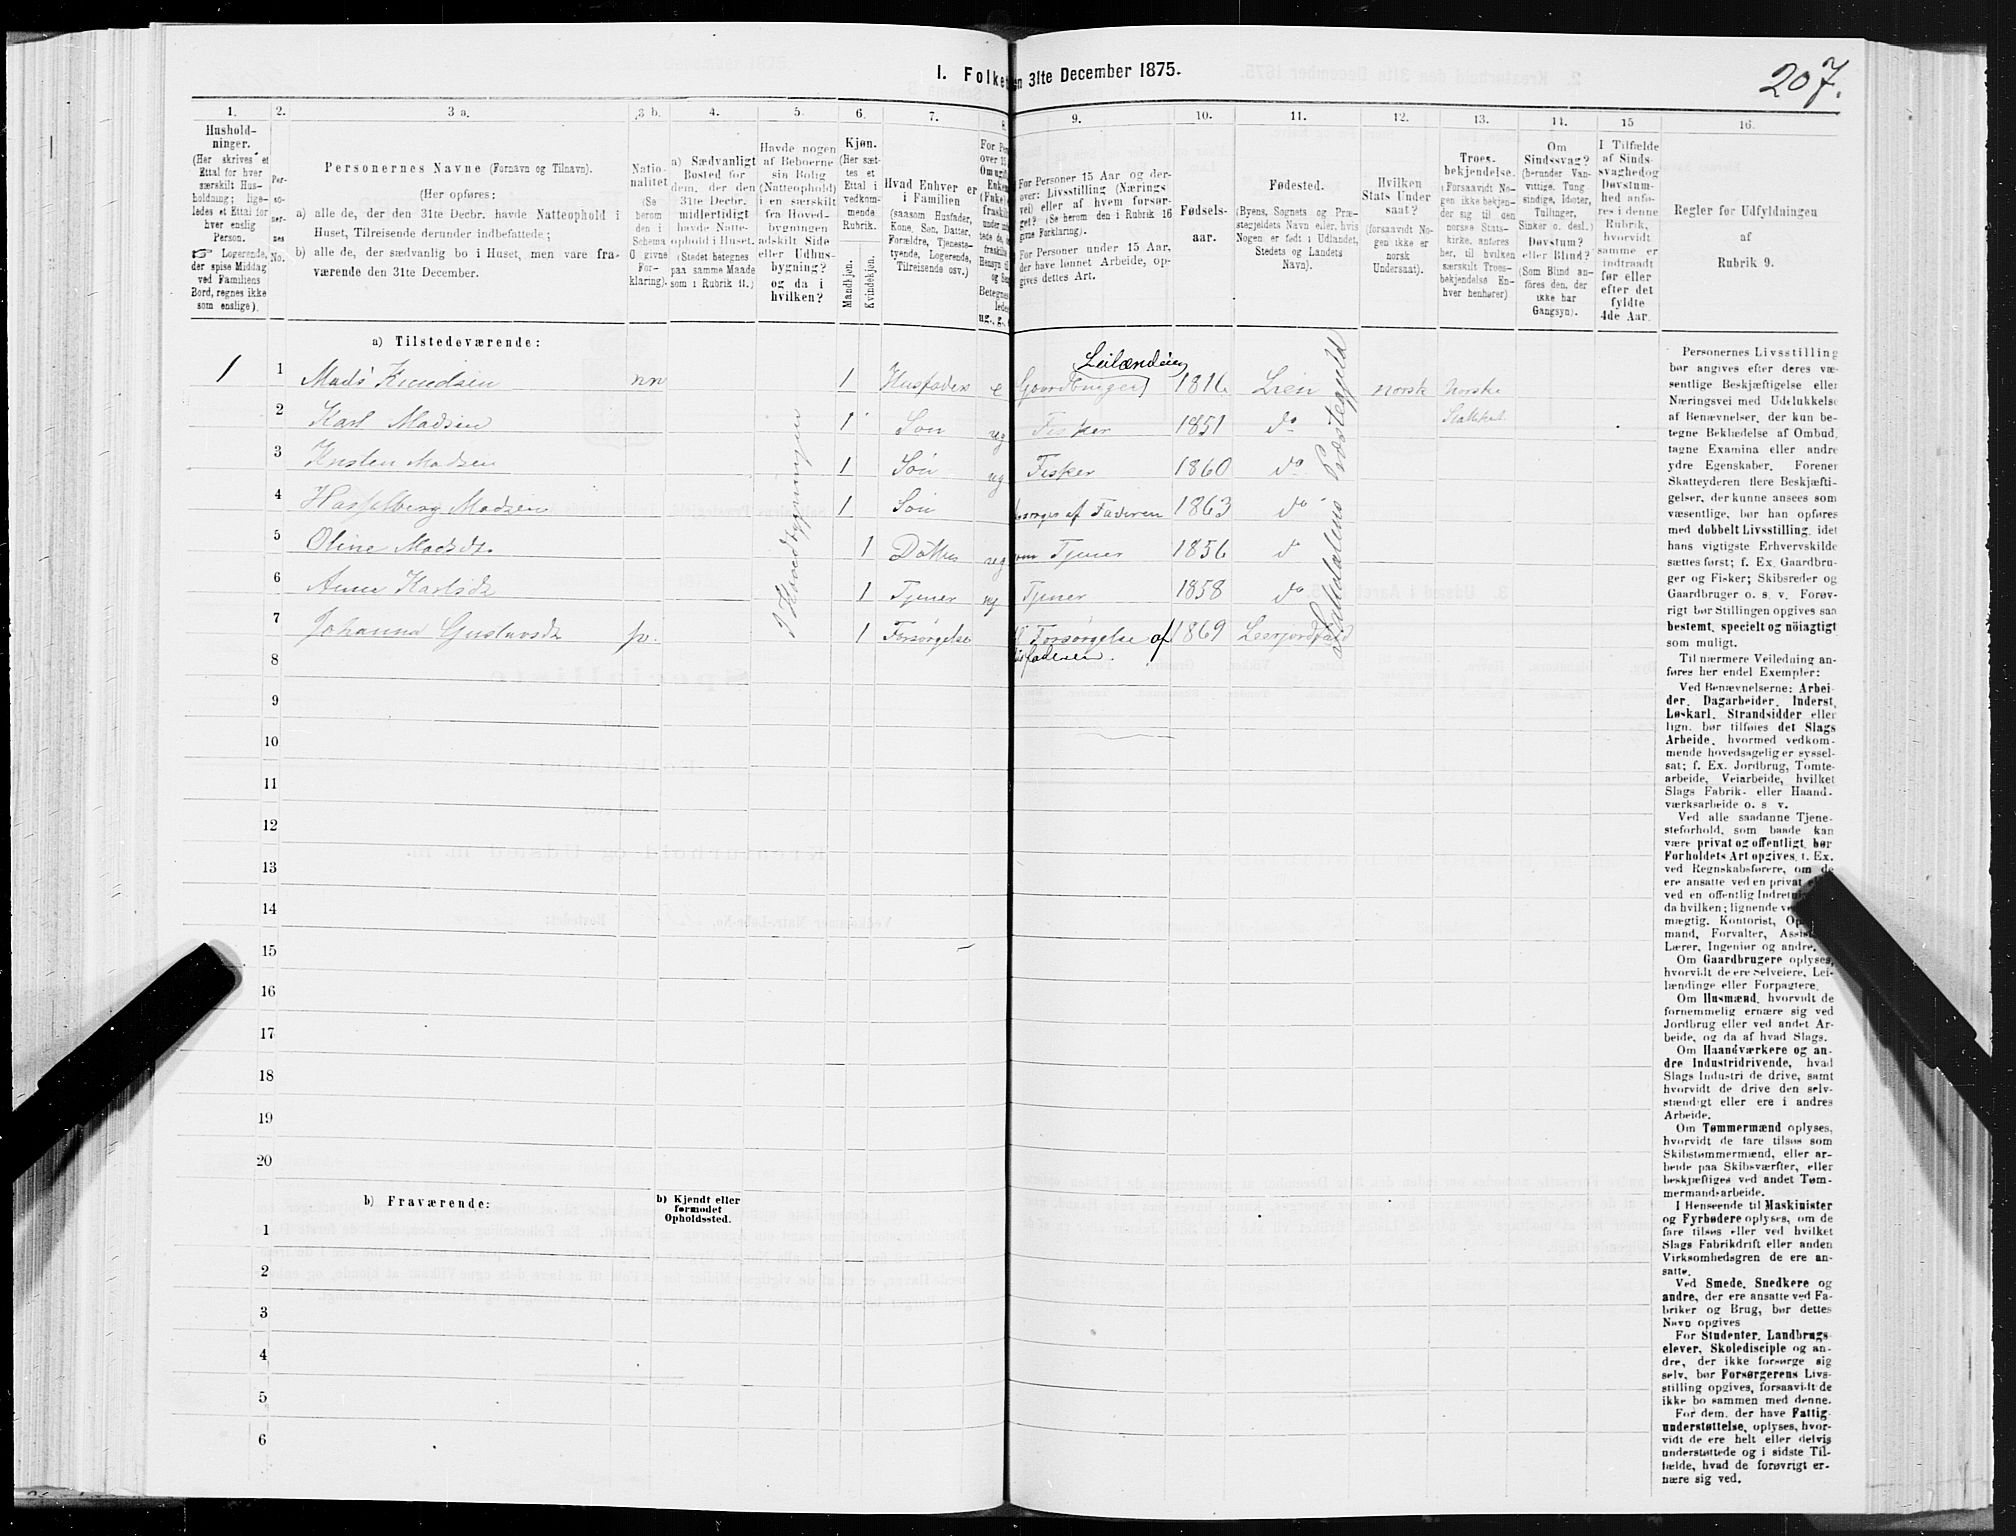 I. Folket
en 31te December 1875.
207.
1.
2.
3 a.
3 b.
4.
5.
6.
7.
8.
9.
10.
11.
12.
13.
14.
15
16.
Hushold-
ninger.
(Her skrives et
Ettal for hver
særskilt Hus-
holdning; lige-
ledes et Ettal for
hver enslig
Person.
☞ Logerende,
der spise Middag
ved Familiens
Bord, regnes ikke
som enslige).
Per-
so-
ner-
nes
No.
Personernes Navne (Fornavn og Tilnavn).
(Her opføres:
a) alle de, der den 31te Decbr. havde Natteophold i
Huset, Tilreisende derunder indbefattede;
b) alle de, der sædvanlig bo i Huset, men vare fra-
værende den 31te December.
Natio-
nalitet
(Se
herom
den i
Schema
0 givne
For-
klaring).
a) Sædvanligt
Bosted for
dem, der den
31te Decbr.
midlertidigt
havde Natte-
ophold i Huset.
(Stedet betegnes
paa samme Maade
som i Rubrik 11.)
Havde nogen
af Beboerne
sin Bolig
(Natteophold)
i en særskilt
fra Hoved-
bygningen
adskilt Side
eller Udhus-
bygning?
og da i
hvilken?
Kjøn.
(Her sæt-
tes et
Ettal i
vedkom-
mende
Rubrik.
Mandkjøn.
Kvindekjøn.
Hvad Enhver er
i Familien
(saasom Husfader,
Kone, Søn, Datter,
Forældre, Tjeneste-
tyende, Logerende,
Tilreisende osv.)
For Personer 15 Aar og der-
over: Livsstilling (Nærings
vei) eller af hvem forsør-
get? (Se herom den i Rubrik 16
givne Forklaring).
For Personer under 15 Aar,
der have lønnet Arbeide, op-
gives dettes Art.
Fødsels-
aar.
Fødested.
(Byens, Sognets og Præ-
stegjeldets Navn eller, hvis
Nogen er født i Udlandet,
Stedets og Landets
Navn).
Hvilken
Stats Under
saat?
(forsaavidt No-
gen ikke er
norsk
Undersaat).
Troes-
bekjendelse.
(Forsaavidt No-
gen ikke bekjen-
der sig til den
norske Stats-
kirke, anføres
her, til hvilken
særskilt Troes-
bekjendelse En-
hver henhører)
Om
Sindssvag?
(herunder Van-
vittige, Tung
sindige, Idioter,
Tullinger,
Sinker o. desl.)
Døvstum?
eller Blind?
(Som Blind an-
føres den, der
ikke har
Gangsyn).
I Tilfælde
af Sinds-
svaghedog
Døvstum-
hed anfø-
res i denne
Rubrik,
hvorvidt
samme er
indtraadt
før eller
efter det
fyldte
4de Aar.
Regler for Udfyldningen
af
Rubrik 9.
a) Tilstedeværende:
1
1 Mads Knudsen nn 1 Husfader e Leilænding Gaardbruger 1816 Lien norsk norske
2 Karl Madsen 1 Søn ug Fisker 1851 do Statskirk.
3 Kristen Madsen 1 Søn ug Fisker 1860 do
4 Hasselberg Madsen 1 Søn forsørges af Faderen 1863 do
5 Oline Madsdt. 1 Datter ug som Tjener 1856 do
6 Anne Karlsdt 1 Tjener ug Tjener 1858 do
7 Johanna Gustavsdt p. 1 Forsørgelse Forsørgelse af Husfaderen. 1869 Leerfjordfald
I Hovedbygningen
Præstegjeld
8
9
10
11
12
13
14
15
16
17
18
19
20
b) Fraværende:
b) Kjendt eller
formodet
Opholdssted.
1
2
3
4
5
6
Personernes Livsstilling
bør angives efter deres væ-
sentlige Beskjæftigelse eller
Næringsvei med Udelukkelse
af Benævnelser, der kun be-
tegne Beklædelse af Ombud,
tagne Examina eller andre
ydre Egenskaber. Forener
Skatteyderen flere Beskjæfti-
gelser, der kunne ansees som
væsentlige, bør han opføres
med dobbelt Livsstilling, idet
hans vigtigste Erhvervskilde
sættes først; f. Ex. Gaardbru-
ger og Fisker; Skibsreder og
Gaardbruger o. s. v. Forøv-
rigt bør Stillingen opgives saa
bestemt, specielt og nöiagtigt
som muligt.
Til nærmere Veiledning an-
føres her endel Exempler:
Ved Benævnelserne: Arbei-
der, Dagarbeider, Inderst,
Løskarl, Strandsidder eller
lign. bør tilføies det Slags
Arbeide, hvormed vedkom-
mende hovedsagelig er syssel-
sat; f. Ex. Jordbrug, Tomte-
arbeide, Veiarbeide, hvilket
Slags Fabrik- eller Haand-
værksarbeide o. s. v.
Ved alle saadanne Tjene-
steforhold, som baade kan
være privat og offentligt, bør
Forholdets Art opgives, f. Ex.
ved Regnskabsførere, om de
ere ansatte ved en privat eller
ved en offentlig Indretning
da hvilken; lignende ved
mægtig, Kontorist,
mand, Forvalter,
Lærer, Ingeniør og andre.
Om Gaardbrugere oplyses,
hvorvidt de ere Selveiere, Lei-
lændinge eller Forpagtere.
Om Husmænd, hvorvidt de
fornemmelig ernære sig ved
Jordbrug eller ved andet Ar-
beide, og da af hvad Slags.
Om Haandværkere og an-
dre Industridrivende, hvad
Slags Industri de drive, samt
hvorvidt de drive den selv-
stændigt eller ere i andres
Arbeide.
Om Tømmermænd oplyses,
hvorvidt de fare tilsøs som
Skibstømmermænd, eller ar-
beide paa Skibsværfter, eller
beskjæftiges ved andet Tøm-
mermandsarbeide.
I Henseende til Maskinister
og Fyrbødere oplyses, om de
fare tilsøs eller ved hvilket
Slags Fabrikdrift eller anden
Virksomhedsgren de ere an-
satte.
Ved Smede, Snedkere og
andre, der ere ansatte ved Fa-
briker og Brug, bør dettes
Navn opgives
For Studenter, Landbrugs-
elever, Skoledisciple og an-
dre, der ikke forsørge sig
selv, bør Forsørgerens Livs-
stilling opgives, forsaavidt de
ikke bo sammen med denne.
For dem, der have Fattig-
understøttelse, oplyses, hvor-
vidt de ere helt eller delvis
understøttede og i sidste Til-
fælde, hvad de forøvrigt er-
nære sig ved.